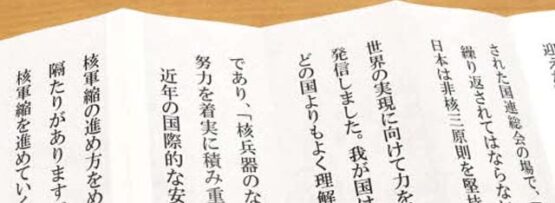 迎え
された国連総会の場で、
繰り返されてはならな
日本は非核三原則を堅持
世界の実現に向けて力を
発信しました。我が国は
どの国よりもよく理解
であり、「核兵器のな
努力を着実に積み重
近年の国際的な安
核軍縮の進め方をめ
隔たりがあります
核軍縮を進めていく